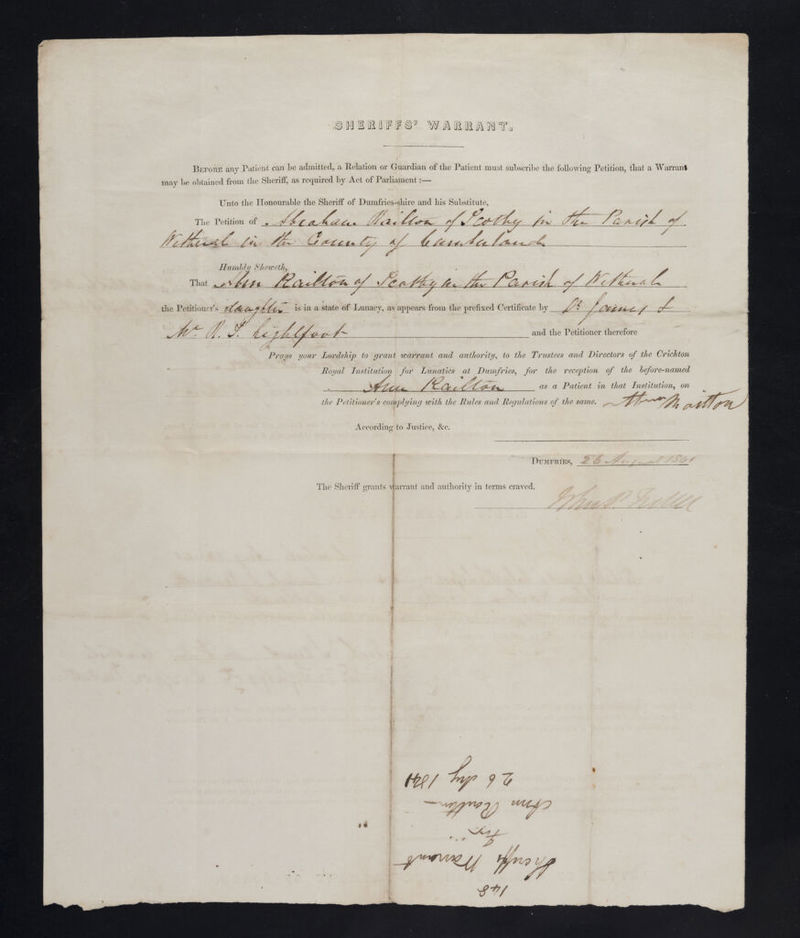 SHERIFFS' WARRANT.
BEFORE any Patient can be admitted, a Relation or Guardian of the Patient must subscribe the following Petition, that a Warrant
may be obtained from the Sheriff, as required by Act of Parliament :—
Unto the Honourable the Sheriff of Dumfries-shire and his Substitute,
The Petition of Abraham Railton of Scotby in the Parish of
Wetheral in the County of Cumberland
Humbly Sheweth,
That Ann Railton of Scotby in the Parish of Wetheral
the Petitioner's daughter is in a state of Lunacy, as appears from the prefixed Certificate by Dr James &
Mr R. S. Lightfoot and the Petitioner therefore
Prays your Lordship to grant warrant and authority, to the Trustees and Directors of the Crichton
Royal Institution for Lunatics at Dumfries, for the reception of the before-named
Ann Railton as a Patient in that Institution, on
the Petitioner's complying with the Rules and Regulations of the same.
According to Justice, &c.
DUMFRIES, 26 August 1841
The Sheriff grants warrant and authority in terms craved.
148
Sheriffs Warrant
For
Ann Railton
26 Aug 1841